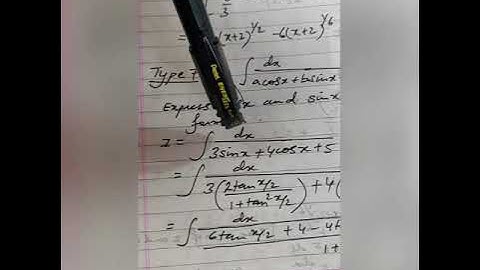 3
= (x+2)^{1/2} -6(x+2)^{1/6}
Type ∫ dx / acosx+bsinx
Express and sinx
I = ∫ dx / 3sinx+4cosx+5
= ∫ dx / 3(2tan x/2 / 1+tan² x/2) +4(
= ∫ dx / 6tan x/2 + 4 - 4t
1+